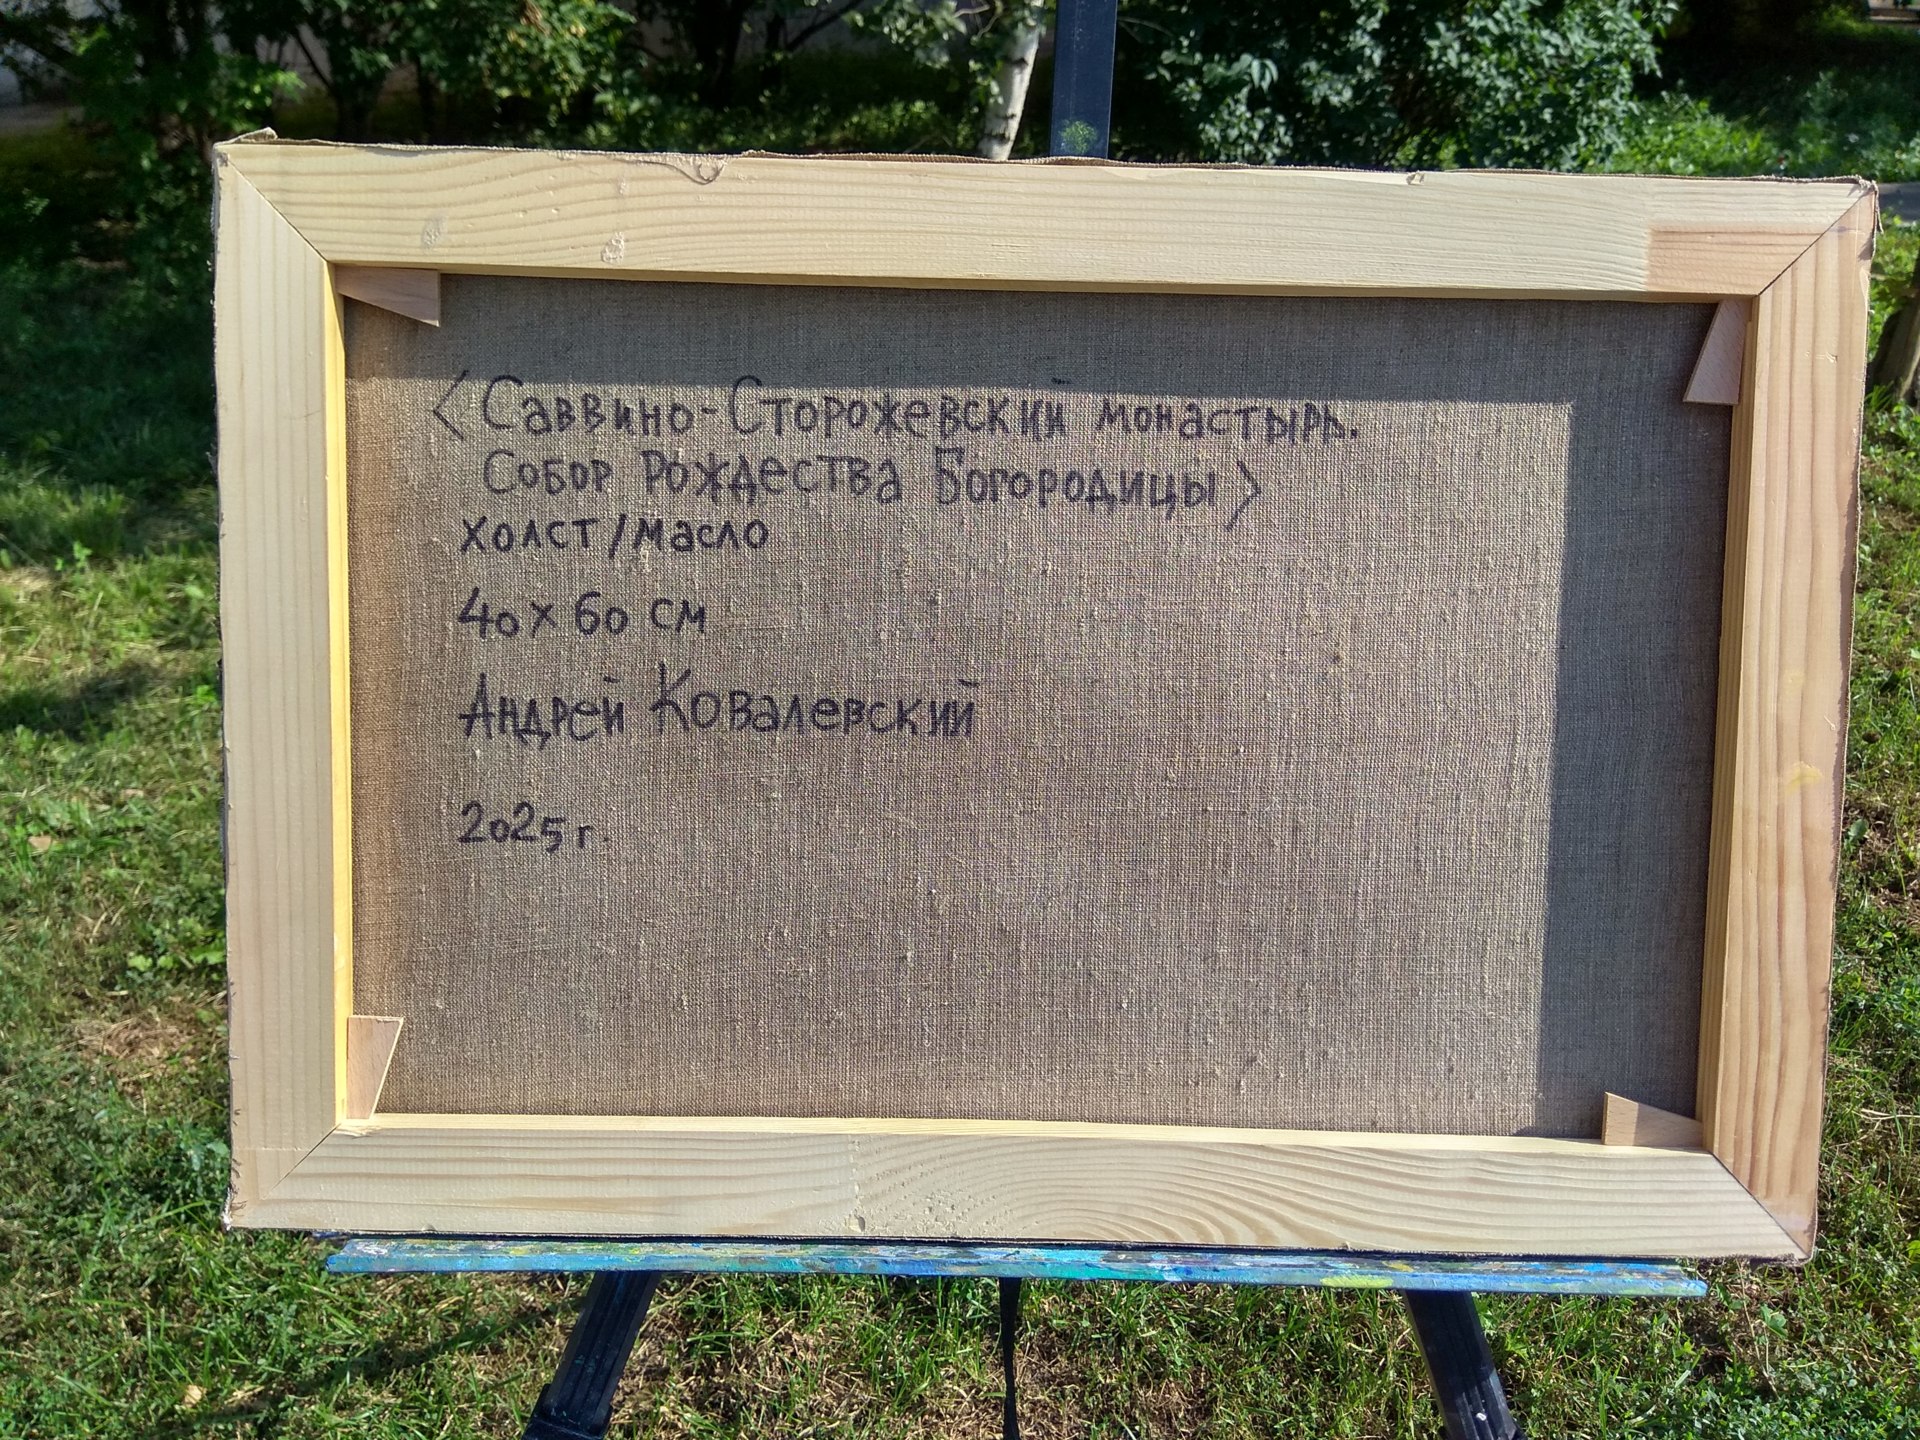 <Саввино-Сторожевский монастырь.
Собор Рождества Богородицы>
холст/масло
40х60 см
Андрей Ковалевский
2025г.